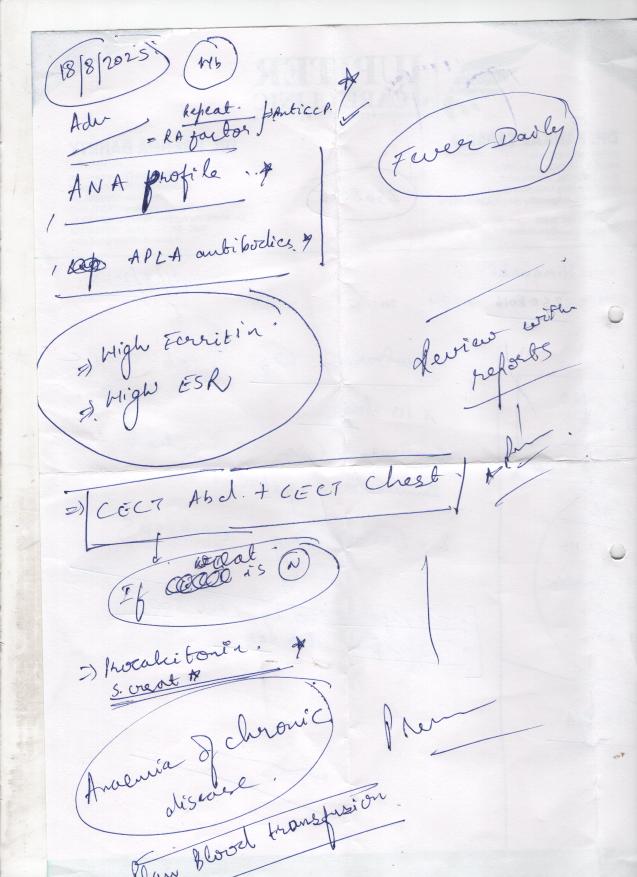 18/8/2025
Wb
Adv
Repeat
= RA factor / + Anti CCP.
Fever Daily
ANA profile
APLA antibodies
=> High Ferritin.
=> High ESR
Review with
reports
=> CECT Abd. + CECT Chest
If creat is N
=> Procalcitonin.
S. creat
Anaemia of chronic
disease.
Plan Blood transfusion.